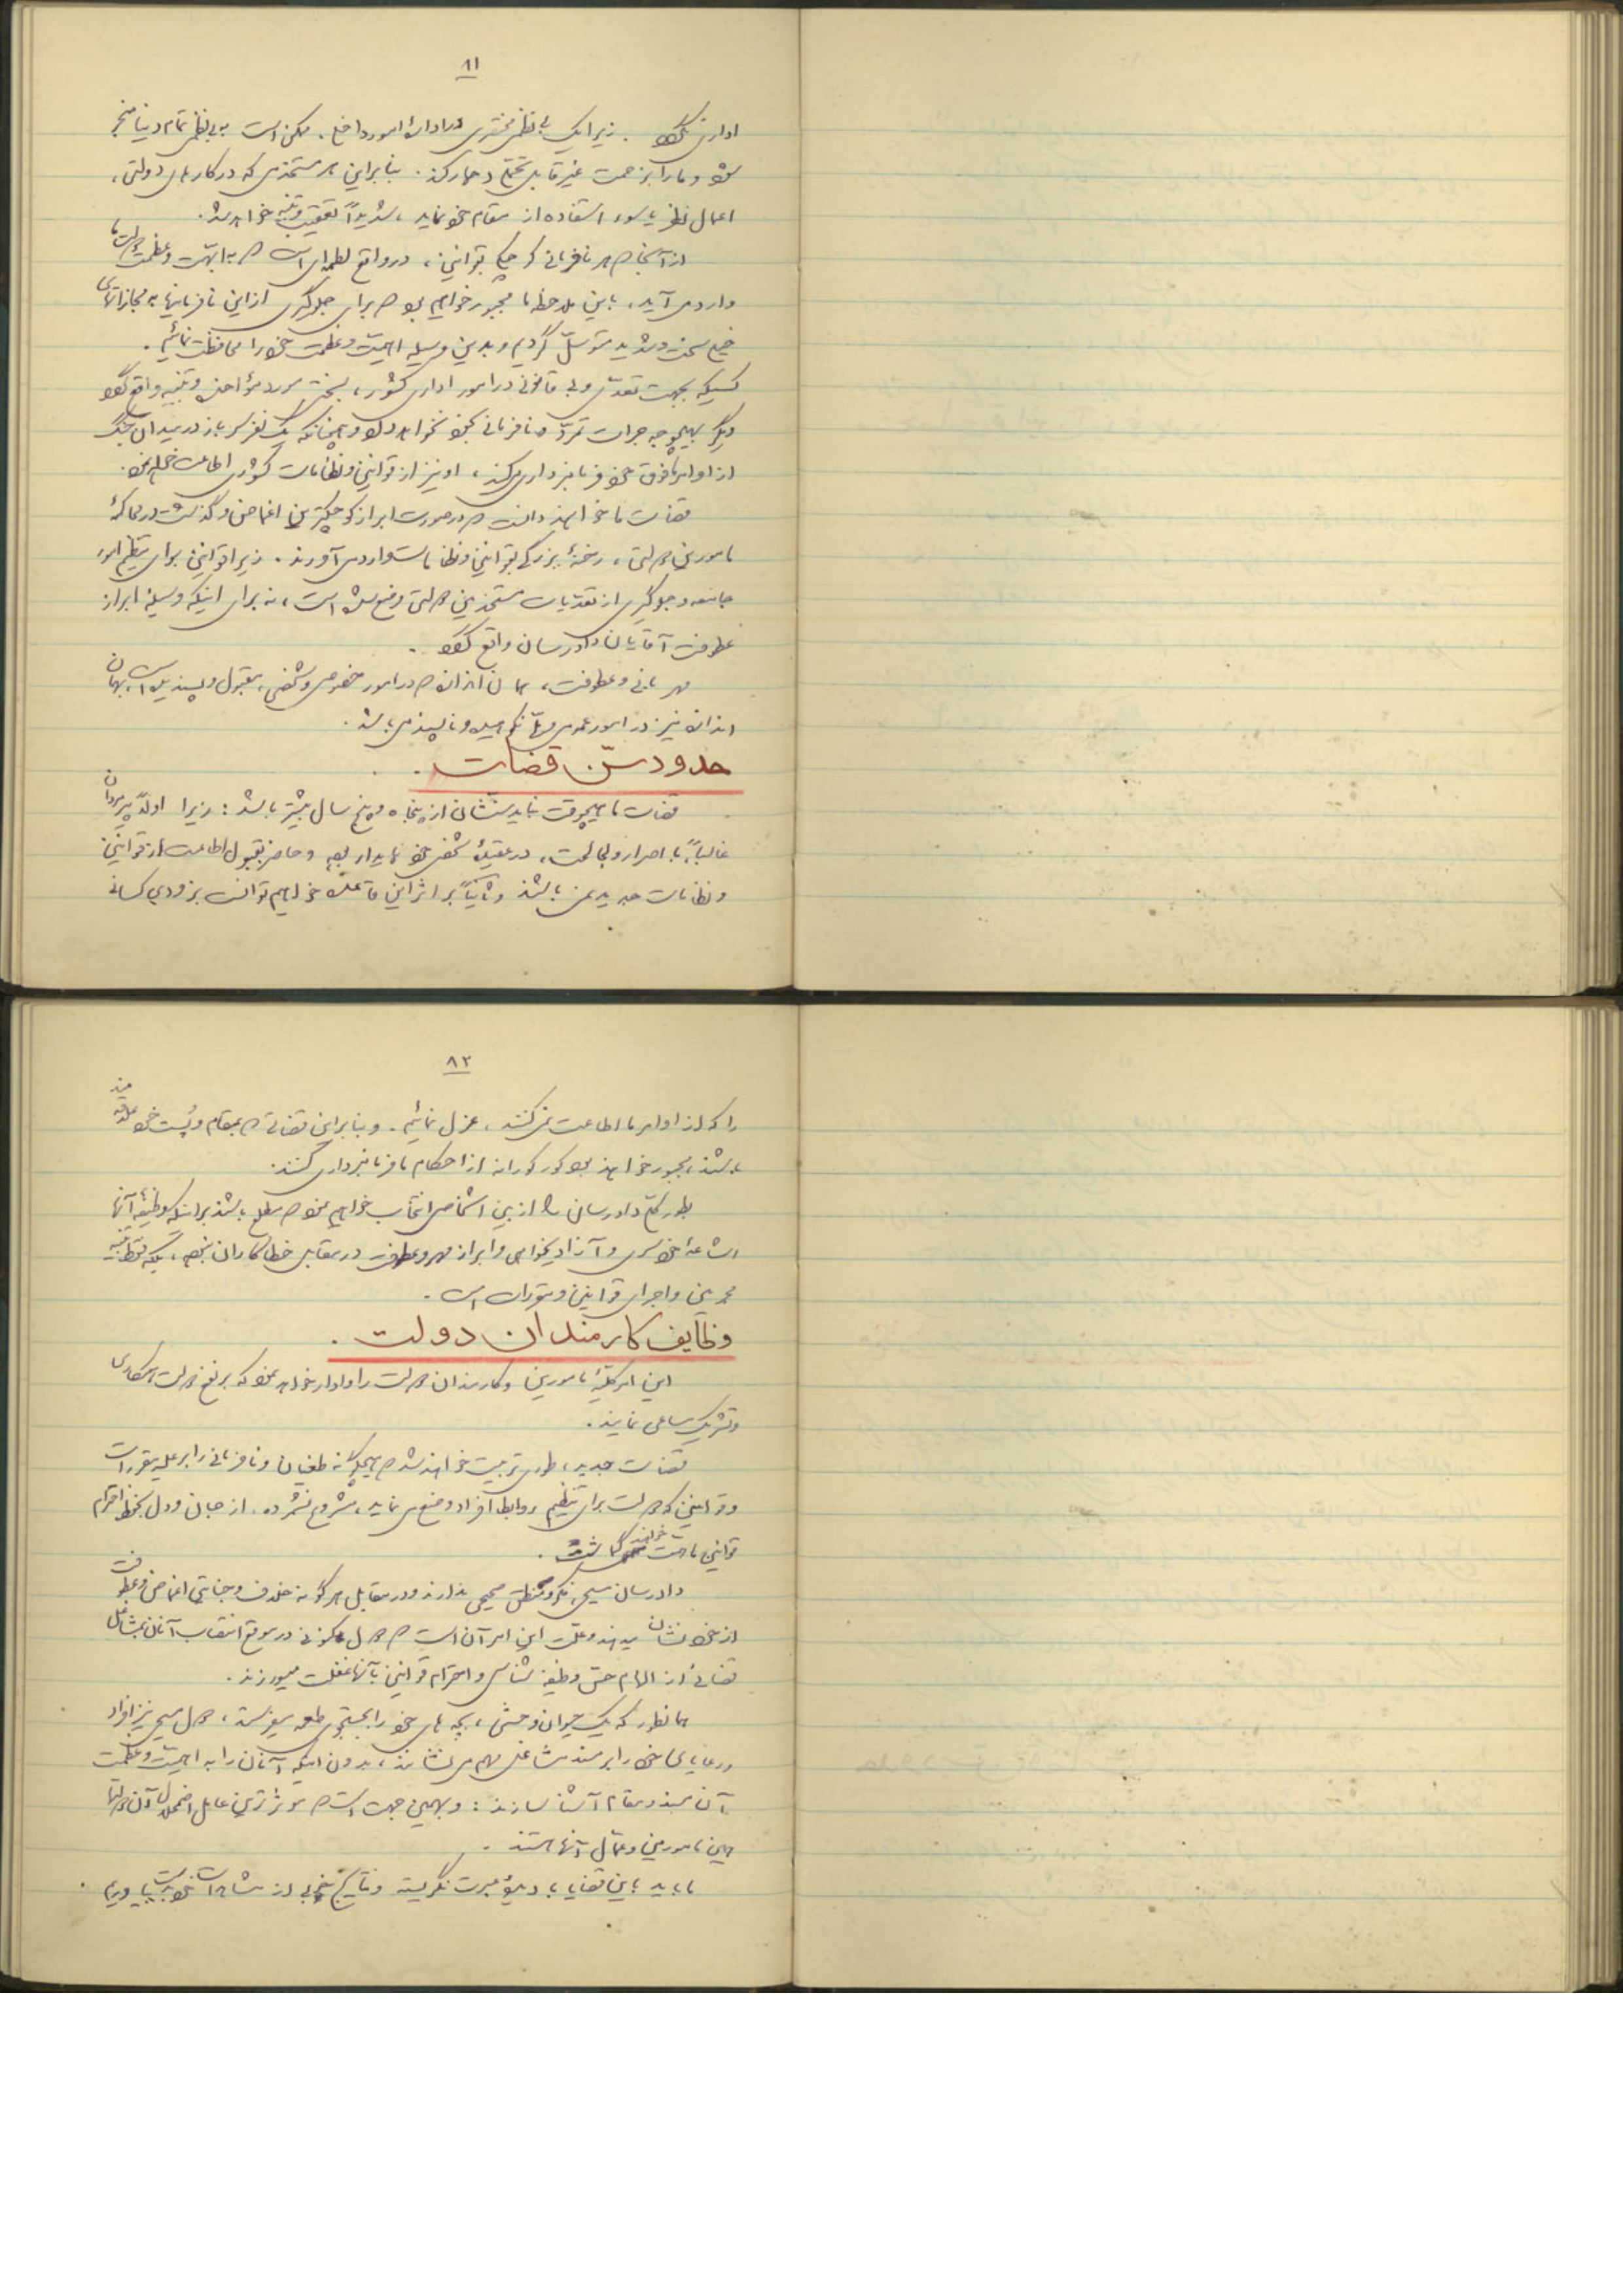 ۸۱
اداری نگردد. زیرا یک بی نظمی مختصری در ادارهٔ امور داخلی، ممکن است به بی نظمی تمام دنیا منجر
شود و ما را بزحمت غیر قابل تحمّلی دچار کند. بنابراین هر مستخدمی که در کارهای دولتی،
اعمال نظر یا سوء استفاده از مقام خود نماید، شدیداً تعقیب و تنبیه خواهد شد.
از آنجا که هر نافرمانی کوچک بقوانین، در واقع لطمه‌ای است که به ابهّت و عظمت دولت ما
وارد می آید، باین ملاحظه ما مجبور خواهیم بود که برای جلوگیری از این نافرمانیها به مجازاتهای
خیلی سخت و شدید متوسّل گردیم و بدین وسیله اهمیّت و عظمت خود را محافظت نمائیم.
کسیکه بجهت تعدّی و بی قانونی در امور اداری کشور، بسختی مورد مؤاخذه و تنبیه واقع گردد
دیگر بهیچوجه جرأت تمرّد و نافرمانی بخود نخواهد داد و همچنانکه یک نفر سرباز در میدان جنگ
از اوامر مافوق خود فرمانبرداری میکند، او نیز از قوانین و نظامات کشوری اطاعت خواهد نمود.
قضات ما خواهند دانست که در صورت ابراز کوچکترین اغماض و گذشت در محاکمهٔ
مامورین دولتی، رخنهٔ بزرگی بقوانین و نظامات وارد می آورند. زیرا قوانین برای تنظیم امور
جامعه و جلوگیری از تعدّیات مستخدمین دولتی وضع شده است، نه برای اینکه وسیلهٔ ابراز
عطوفت آقایان دادرسان واقع گردد.
مهربانی و عطوفت، همان اندازه که در امور خصوصی و شخصی، مقبول و پسندیده است، بهمان
اندازه نیز در امور عمومی و ملّی نکوهیده و ناپسند می باشد.
حدود سنّ قضات.
قضات ما هیچوقت نباید سنّشان از پنجاه و پنج سال بیشتر باشد: زیرا اولاً پیرمردان
غالباً، با اصرار و لجاجت، در عقیدهٔ شخصی خود پایدار بوده و حاضر بقبول اطاعت از قوانین
و نظامات جدید نمی باشند و ثانیاً بر اثر این قاعده خواهیم توانست بزودی کسانی
۸۲
را که از اوامر ما اطاعت نمی کنند، عزل نمائیم. و بنابراین قضاتی که بمقام و پُست خود علاقه مند
باشند، مجبور خواهند بود کورکورانه از احکام ما فرمانبرداری کنند.
بطور کلّی دادرسان را از بین اشخاصی انتخاب خواهیم نمود که مطلع باشند براینکه وظیفهٔ آنها
اشاعهٔ خودسری و آزادیخواهی و ابراز مهر و عطوفت در مقابل خطاکاران نبوده، بلکه فقط تنبیه
مجرمین و اجرای قوانین و مقررات است.
وظایف کارمندان دولت.
این امر کلیّهٔ مامورین و کارمندان دولت را وادار خواهد نمود که بر نفع دولت همکاری
و تشریک مساعی نمایند.
قضات جدید، طوری تربیت خواهند شد که هیچگونه طغیان و نافرمانی را بر علیه مقررات
و قوانینی که دولت برای تنظیم روابط افراد وضع می نماید، مشروع نشمرده، از جان و دل بحفظ احترام
قوانین ما همّت خواهند گماشت.
دادرسان مسیحی، فکر و منطق صحیحی ندارند و در مقابل هر گونه خلاف و جنایتی اغماض و عطوفت
از خود نشان میدهند و علّت این امر آن است که دول کنونی در موقع انتصاب آنان بمشاغل
قضائی از الهام حسّ وظیفه شناسی و احترام قوانین بآنها غفلت میورزند.
همانطور که یک حیوان وحشی، بچه های خود را بجستجوی طعمه میفرستد، دول مسیحی نیز افراد
و رعایای خود را بر مسند مشاغل مهم می نشانند، بدون اینکه آنان را به اهمیّت و عظمت
آن مسند و مقام آشنا سازند: و بهمین جهت است که موثرترین عامل اضمحلال آن دولتها
همین مامورین و عمّال آنها هستند.
ما باید باین قضایا، با دیدهٔ عبرت نگریسته و نتایج خوبی از مشاهدات خود بدست بیاوریم.